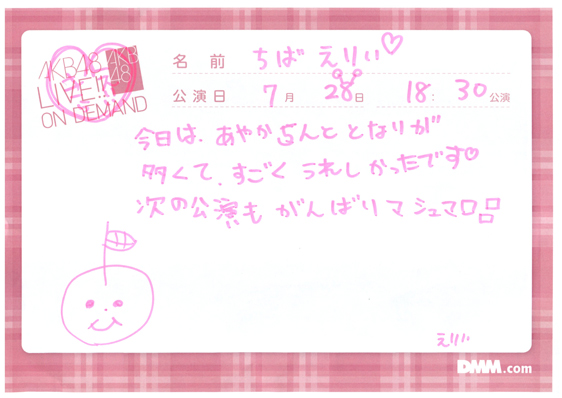 AKB48 AKB48
LIVE!!
ON DEMAND
名前 ちばえりい♡
公演日 7月 28日 18:30公演
今日は、あやかちんととなりが
多くて、すごくうれしかったです♡
次の公演もがんばりマシュマロ
えりい
DMM.com